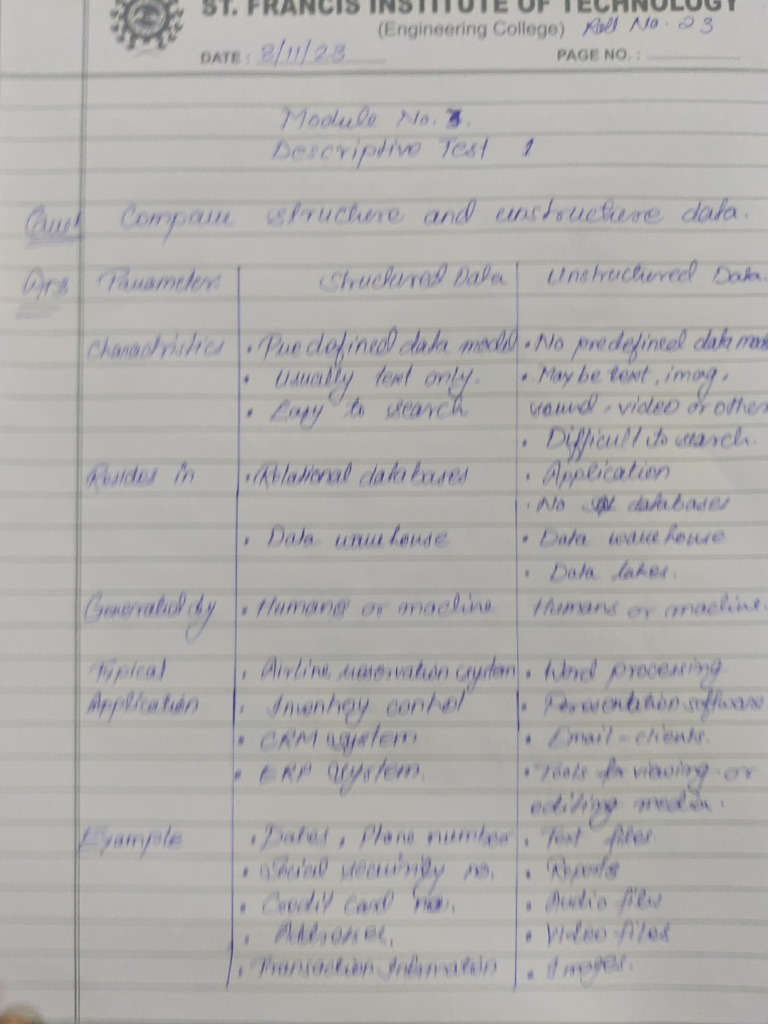 ST. FRANCIS INSTITUTE OF TECHNOLOGY
(Engineering College) Roll No. 23
DATE: 8/11/23 PAGE NO.:
Module No. 3.
Descriptive Test 1
Compare structure and unstructure data.
Ans Parameters Structured Data Unstructured Data.
Charactristics • Predefined data model • No predefined data
• Usually text only. • May be text, imag,
• Easy to search sound, video or other
• Difficult to search.
Resides in • Relational databases • Application
• No databases
• Data warehouse • Data warehouse
• Data lakes.
Generated by • Humans or machine Humans or machine.
Typical • Airline reservation system • Word processing
Application • Inventory control • Presentation software
• CRM system • Email-clients.
• ERP system. • Tools for viewing or
editing media.
Example • Dates, Phone number • Text files
• Social security no. • Reports
• Credit card no. • Audio files
• Addresses, • Video files
• Transaction Information • Images.